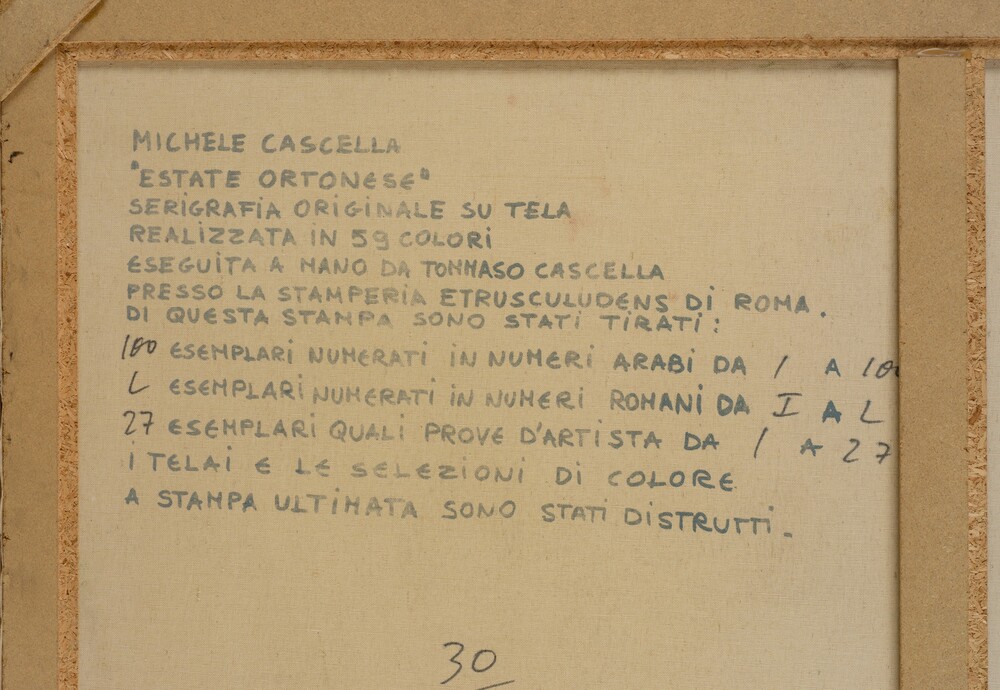 MICHELE CASCELLA
"ESTATE ORTONESE"
SERIGRAFIA ORIGINALE SU TELA
REALIZZATA IN 59 COLORI
ESEGUITA A MANO DA TOMMASO CASCELLA
PRESSO LA STAMPERIA ETRUSCULUDENS DI ROMA.
DI QUESTA STAMPA SONO STATI TIRATI:
100 ESEMPLARI NUMERATI IN NUMERI ARABI DA 1 A 100
L ESEMPLARI NUMERATI IN NUMERI ROMANI DA I A L
27 ESEMPLARI QUALI PROVE D'ARTISTA DA 1 A 27
I TELAI E LE SELEZIONI DI COLORE
A STAMPA ULTIMATA SONO STATI DISTRUTTI.
30